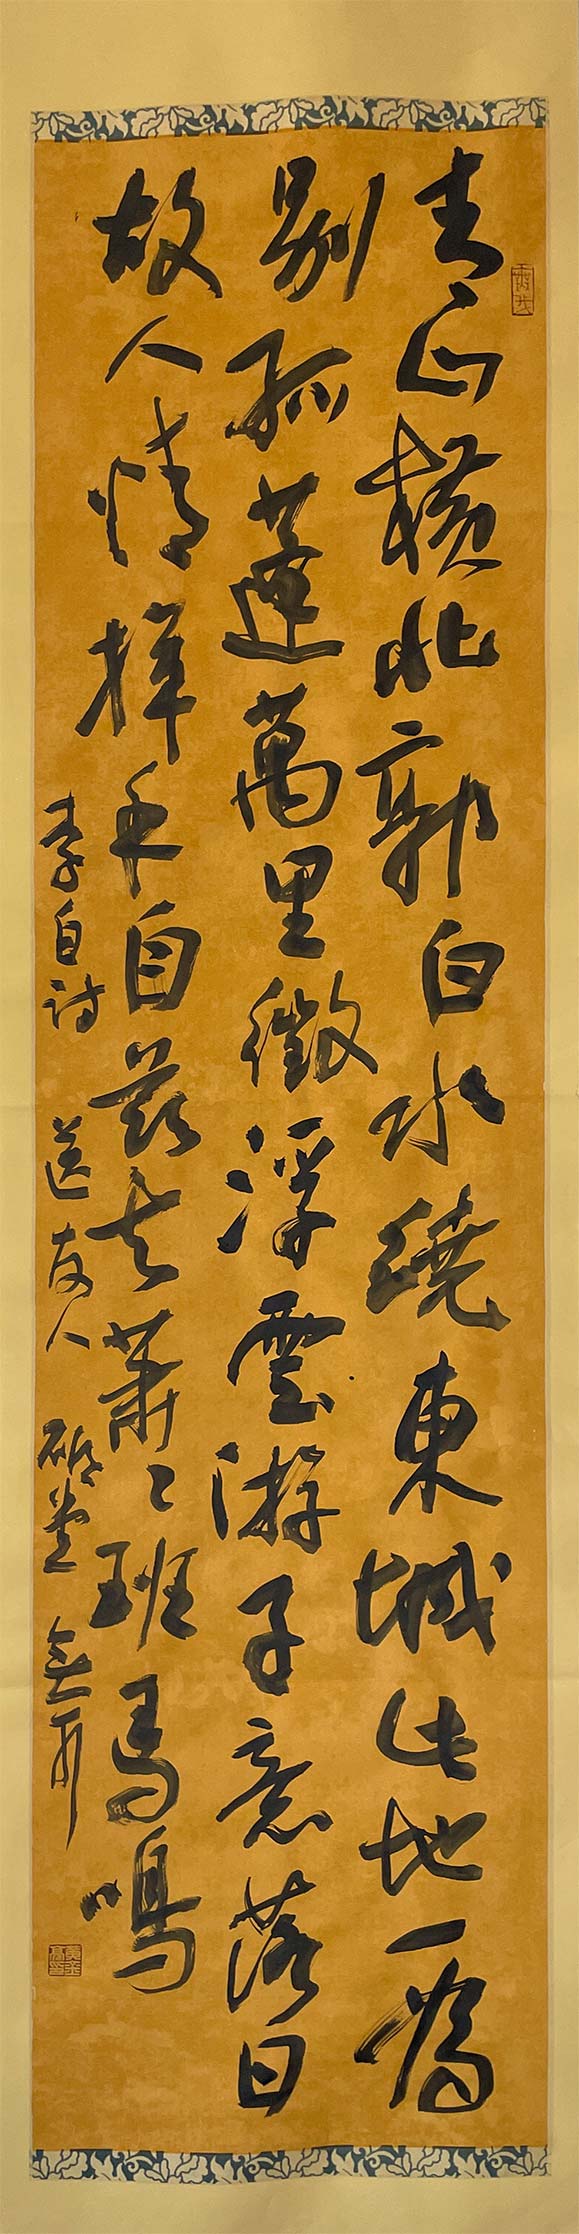 青山橫北郭白水繞東城此地一為
別孤蓬萬里徵浮雲游子意落日
故人情揮手自茲去蕭々班馬鳴
李白詩 送友人